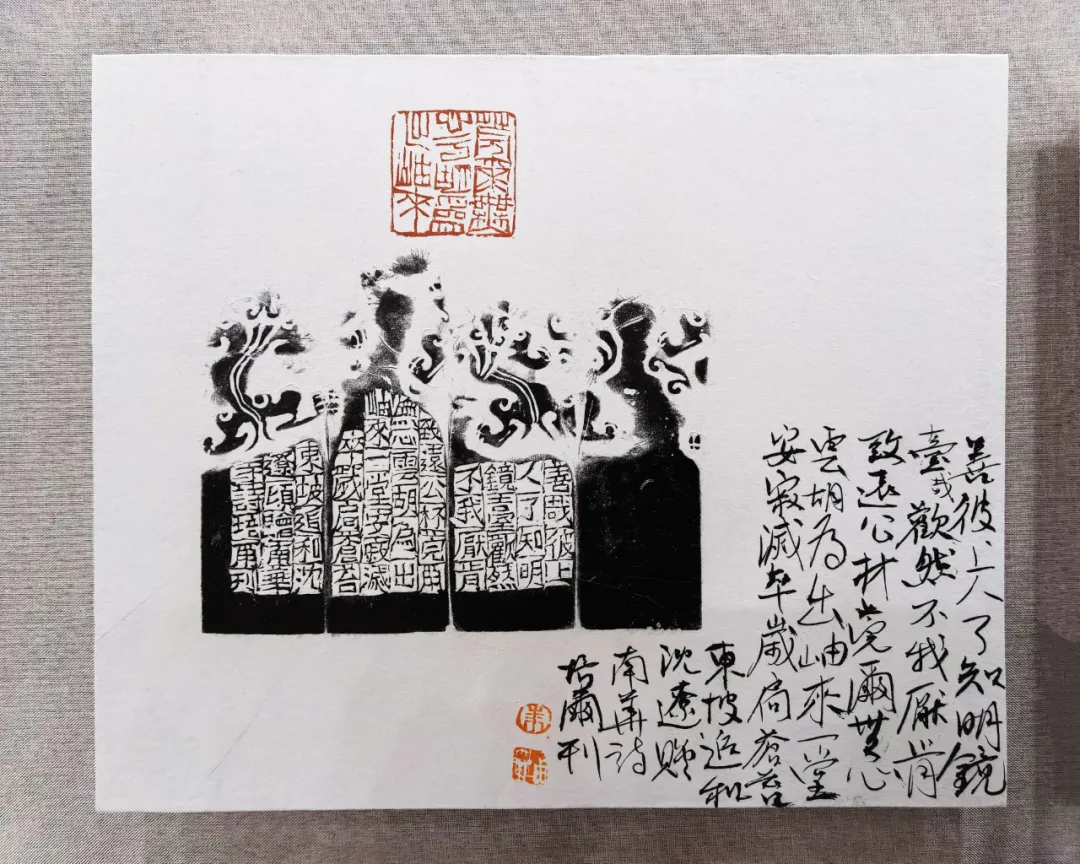 善哉彼上
人了知明
鏡臺歡然
不我厭肯
致遠公材莞爾
無心雲胡為出
岫來一堂安寂滅
卒歲扃蒼苔
東坡追和沈
遼頃贈南華
善彼上人了知明鏡
臺哉歡然不我厭肯
致遠公材莞爾無心
雲胡為出岫來一堂
安寂滅卒歲扃蒼苔
東坡追和
沈遼贈
南華詩
培爾刊